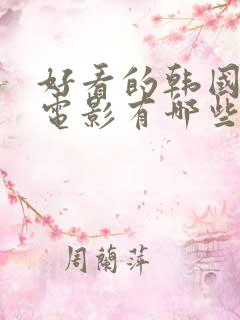 好看的韩国
電影有哪些
周蘭萍